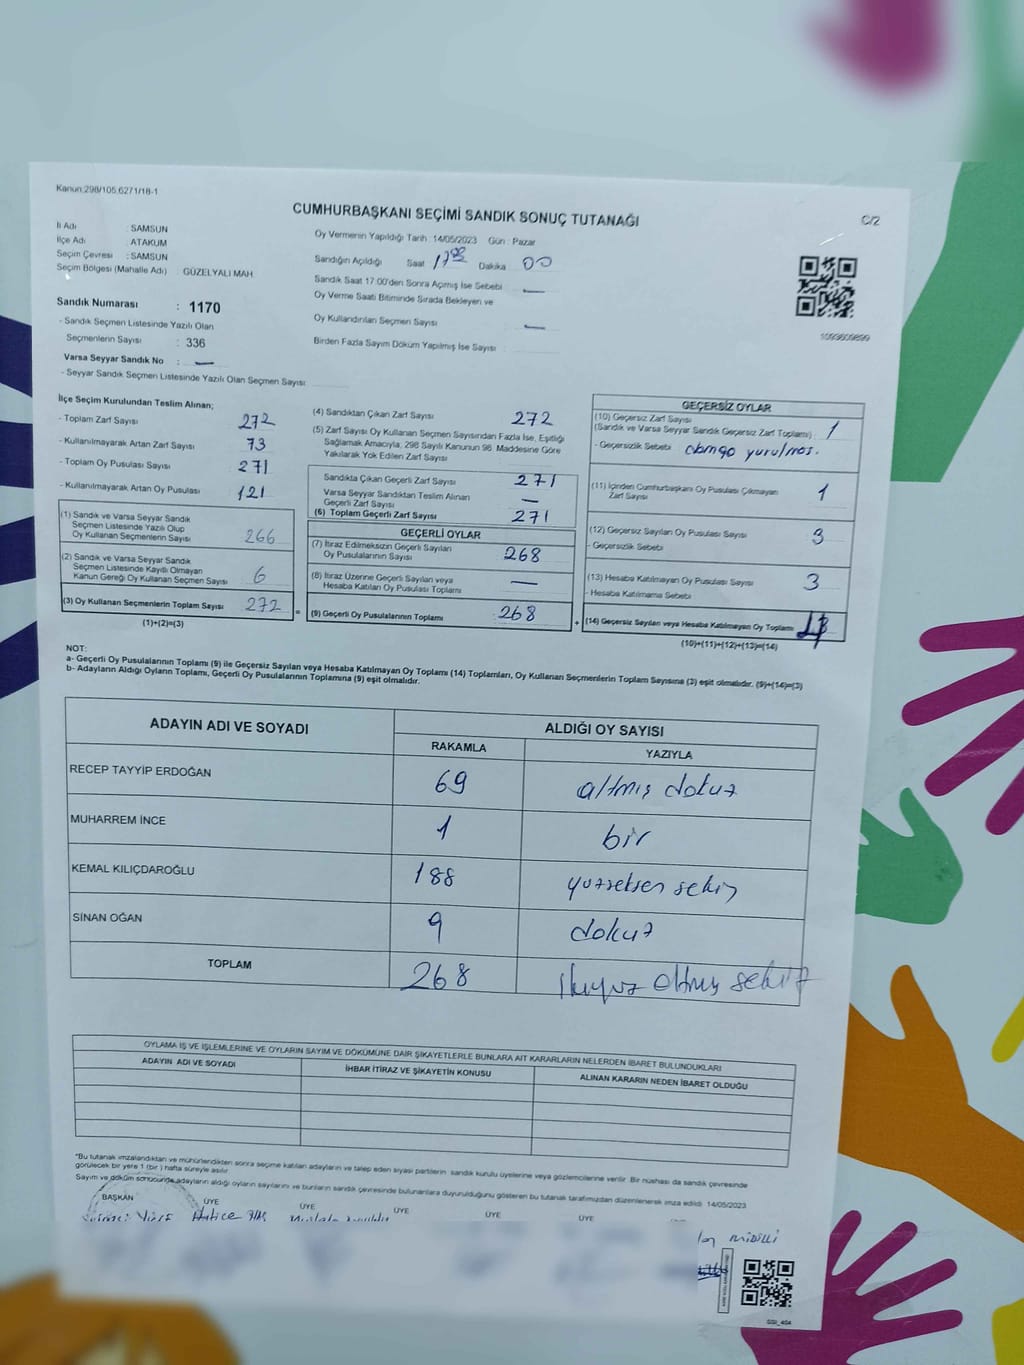 Kanun:298/105,6271/18-1
CUMHURBAŞKANI SEÇİMİ SANDIK SONUÇ TUTANAĞI
C/2
İli Adı : SAMSUN
İlçe Adı : ATAKUM
Seçim Çevresi : SAMSUN
Seçim Bölgesi (Mahalle Adı) : GÜZELYALI MAH
Sandık Numarası : 1170
- Sandık Seçmen Listesinde Yazılı Olan
Seçmenlerin Sayısı : 336
Varsa Seyyar Sandık No : —
- Seyyar Sandık Seçmen Listesinde Yazılı Olan Seçmen Sayısı
Oy Vermenin Yapıldığı Tarih : 14/05/2023 Gün : Pazar
Sandığın Açıldığı Saat Dakika 00
Sandık Saat 17:00'den Sonra Açımış İse Sebebi —
Oy Verme Saati Bitiminde Sırada Bekleyen ve
Oy Kullandırılan Seçmen Sayısı —
Birden Fazla Sayım Döküm Yapılmış İse Sayısı
1093609899
İlçe Seçim Kurulundan Teslim Alınan;
- Toplam Zarf Sayısı 272
- Kullanılmayarak Artan Zarf Sayısı 73
- Toplam Oy Pusulası Sayısı 271
- Kullanılmayarak Artan Oy Pusulası 121
(1) Sandık ve Varsa Seyyar Sandık
Seçmen Listesinde Yazılı Olup
Oy Kullanan Seçmenlerin Sayısı 266
(2) Sandık ve Varsa Seyyar Sandık
Seçmen Listesinde Kayıtlı Olmayan
Kanun Gereği Oy Kullanan Seçmen Sayısı 6
(3) Oy Kullanan Seçmenlerin Toplam Sayısı 272 =
(1)+(2)=(3)
(4) Sandıktan Çıkan Zarf Sayısı 272
(5) Zarf Sayısı Oy Kullanan Seçmen Sayısından Fazla İse, Eşitliği
Sağlamak Amacıyla; 298 Sayılı Kanunun 98. Maddesine Göre
Yakılarak Yok Edilen Zarf Sayısı
Sandıkta Çıkan Geçerli Zarf Sayısı 271
Varsa Seyyar Sandıktan Teslim Alınan
Geçerli Zarf Sayısı —
(6) Toplam Geçerli Zarf Sayısı 271
GEÇERLİ OYLAR
(7) İtiraz Edilmeksizin Geçerli Sayılan
Oy Pusulalarının Sayısı 268
(8) İtiraz Üzerine Geçerli Sayılan veya
Hesaba Katılan Oy Pusulası Toplamı —
(9) Geçerli Oy Pusulalarının Toplamı 268 +
GEÇERSİZ OYLAR
(10) Geçersiz Zarf Sayısı
(Sandık ve Varsa Seyyar Sandık Geçersiz Zarf Toplamı) : 1
- Geçersizlik Sebebi
(11) İçinden Cumhurbaşkanı Oy Pusulası Çıkmayan
Zarf Sayısı 1
(12) Geçersiz Sayılan Oy Pusulası Sayısı 3
- Geçersizlik Sebebi
(13) Hesaba Katılmayan Oy Pusulası Sayısı 3
- Hesaba Katılmama Sebebi
(14) Geçersiz Sayılan veya Hesaba Katılmayan Oy Toplamı
(10)+(11)+(12)+(13)=(14)
NOT:
a- Geçerli Oy Pusulalarının Toplamı (9) ile Geçersiz Sayılan veya Hesaba Katılmayan Oy Toplamı (14) Toplamları, Oy Kullanan Seçmenlerin Toplam Sayısına (3) eşit olmalıdır. (9)+(14)=(3)
b- Adayların Aldığı Oyların Toplamı, Geçerli Oy Pusulalarının Toplamına (9) eşit olmalıdır.
ADAYIN ADI VE SOYADI ALDIĞI OY SAYISI
RAKAMLA YAZIYLA
RECEP TAYYİP ERDOĞAN 69 altmış dokuz
MUHARREM İNCE 1 bir
KEMAL KILIÇDAROĞLU 188 yüzseksen sekiz
SİNAN OĞAN 9 dokuz
TOPLAM 268 ikiyüz altmış sekiz
OYLAMA İŞ VE İŞLEMLERİNE VE OYLARIN SAYIM VE DÖKÜMÜNE DAİR ŞİKAYETLERLE BUNLARA AİT KARARLARIN NELERDEN İBARET BULUNDUKLARI
ADAYIN ADI VE SOYADI İHBAR İTİRAZ VE ŞİKAYETİN KONUSU ALINAN KARARIN NEDEN İBARET OLDUĞU
*Bu tutanak imzalandıktan ve mühürlendikten sonra seçime katılan adayların ve talep eden siyasi partilerin sandık kurulu üyelerine veya gözlemcilerine verilir. Bir nüshası da sandık çevresinde
görülecek bir yere 1 (bir ) hafta süreyle asılır.
Sayım ve döküm sonucunda adayların aldığı oyların sayılarını ve bunların sandık çevresinde bulunanlara duyurulduğunu gösteren bu tutanak tarafımızdan düzenlenerek imza edildi. 14/05/2023
BAŞKAN ÜYE ÜYE ÜYE ÜYE ÜYE
Hatice
MİDİLLİ
SSI_404